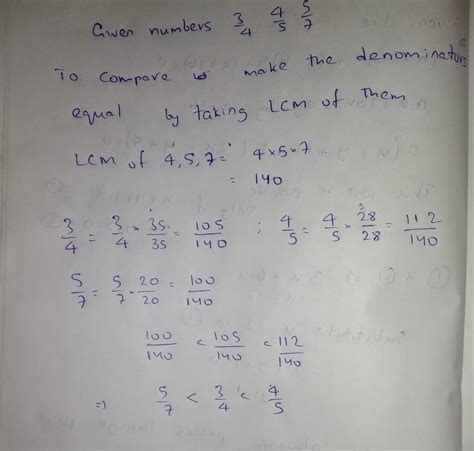 Given numbers 3/4 4/5 5/7
To compare make the denominators
equal by taking LCM of them
LCM of 4,5,7 = 4×5×7
= 140
3/4 = 3/4 × 35/35 = 105/140 ; 4/5 = 4/5 × 28/28 = 112/140
5/7 = 5/7 × 20/20 = 100/140
100/140 < 105/140 < 112/140
⇒ 5/7 < 3/4 < 4/5